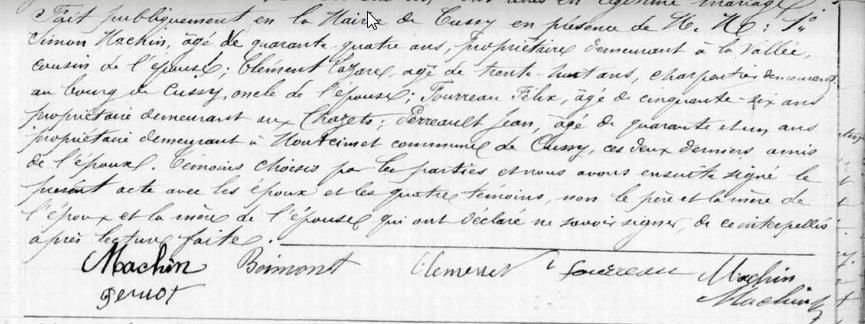 Fait publiquement en la Mairie de Cussy en présence de M. M.: 1°
Simon Machin, âgé de quarante-quatre ans, propriétaire demeurant à la Vallée,
cousin de l'époux; Clément Lazare, âgé de trente-huit ans, charpentier demeurant
au bourg de Cussy, oncle de l'épouse; Fourreau Félix, âgé de cinquante-six ans
propriétaire demeurant aux; Perreault Jean, âgé de quarante et un ans
propriétaire demeurant à commune de Cussy, ces deux derniers amis
de l'époux. Témoins choisis par les parties et nous avons ensuite signé le
présent acte avec les époux et les quatre témoins, non le père et la mère de
l'époux et la mère de l'épouse qui ont déclaré ne savoir signer, de ce interpellés
après lecture faite.
Machin Boimont Clément Fourreau Machin
Machin